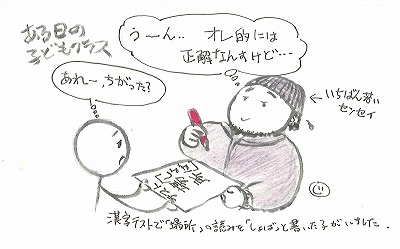 ある日の
子どもクラス
う～ん‥ オレ的には
正解なんすけど…
あれー、ちがった?
←いちばん若い
センセイ
漢字テストで「場所」の読みを「しょばっ」と書いた子がいました.